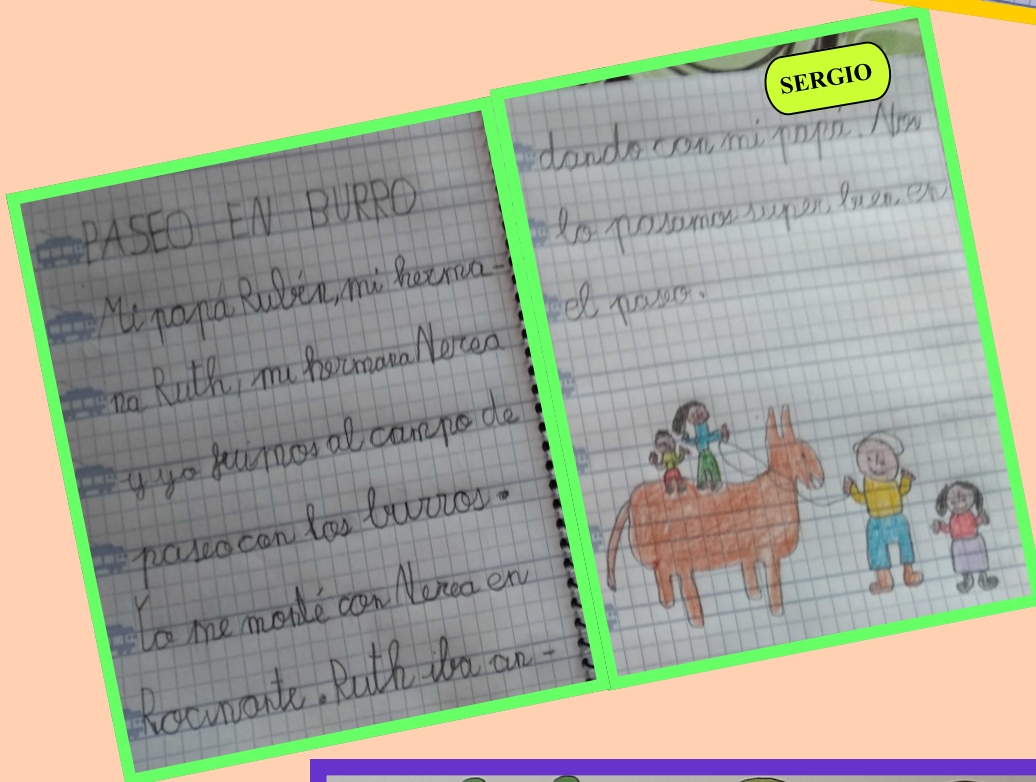 PASEO EN BURRO
Mi papá Rubén, mi herma-
na Ruth, mi hermana Nerea
y yo fuimos al campo de
paseo con los burros.
Yo me monté con Nerea en
Rocinante. Ruth iba an-
SERGIO
dando con mi papá. Nos
lo pasamos super bien en
el paseo.